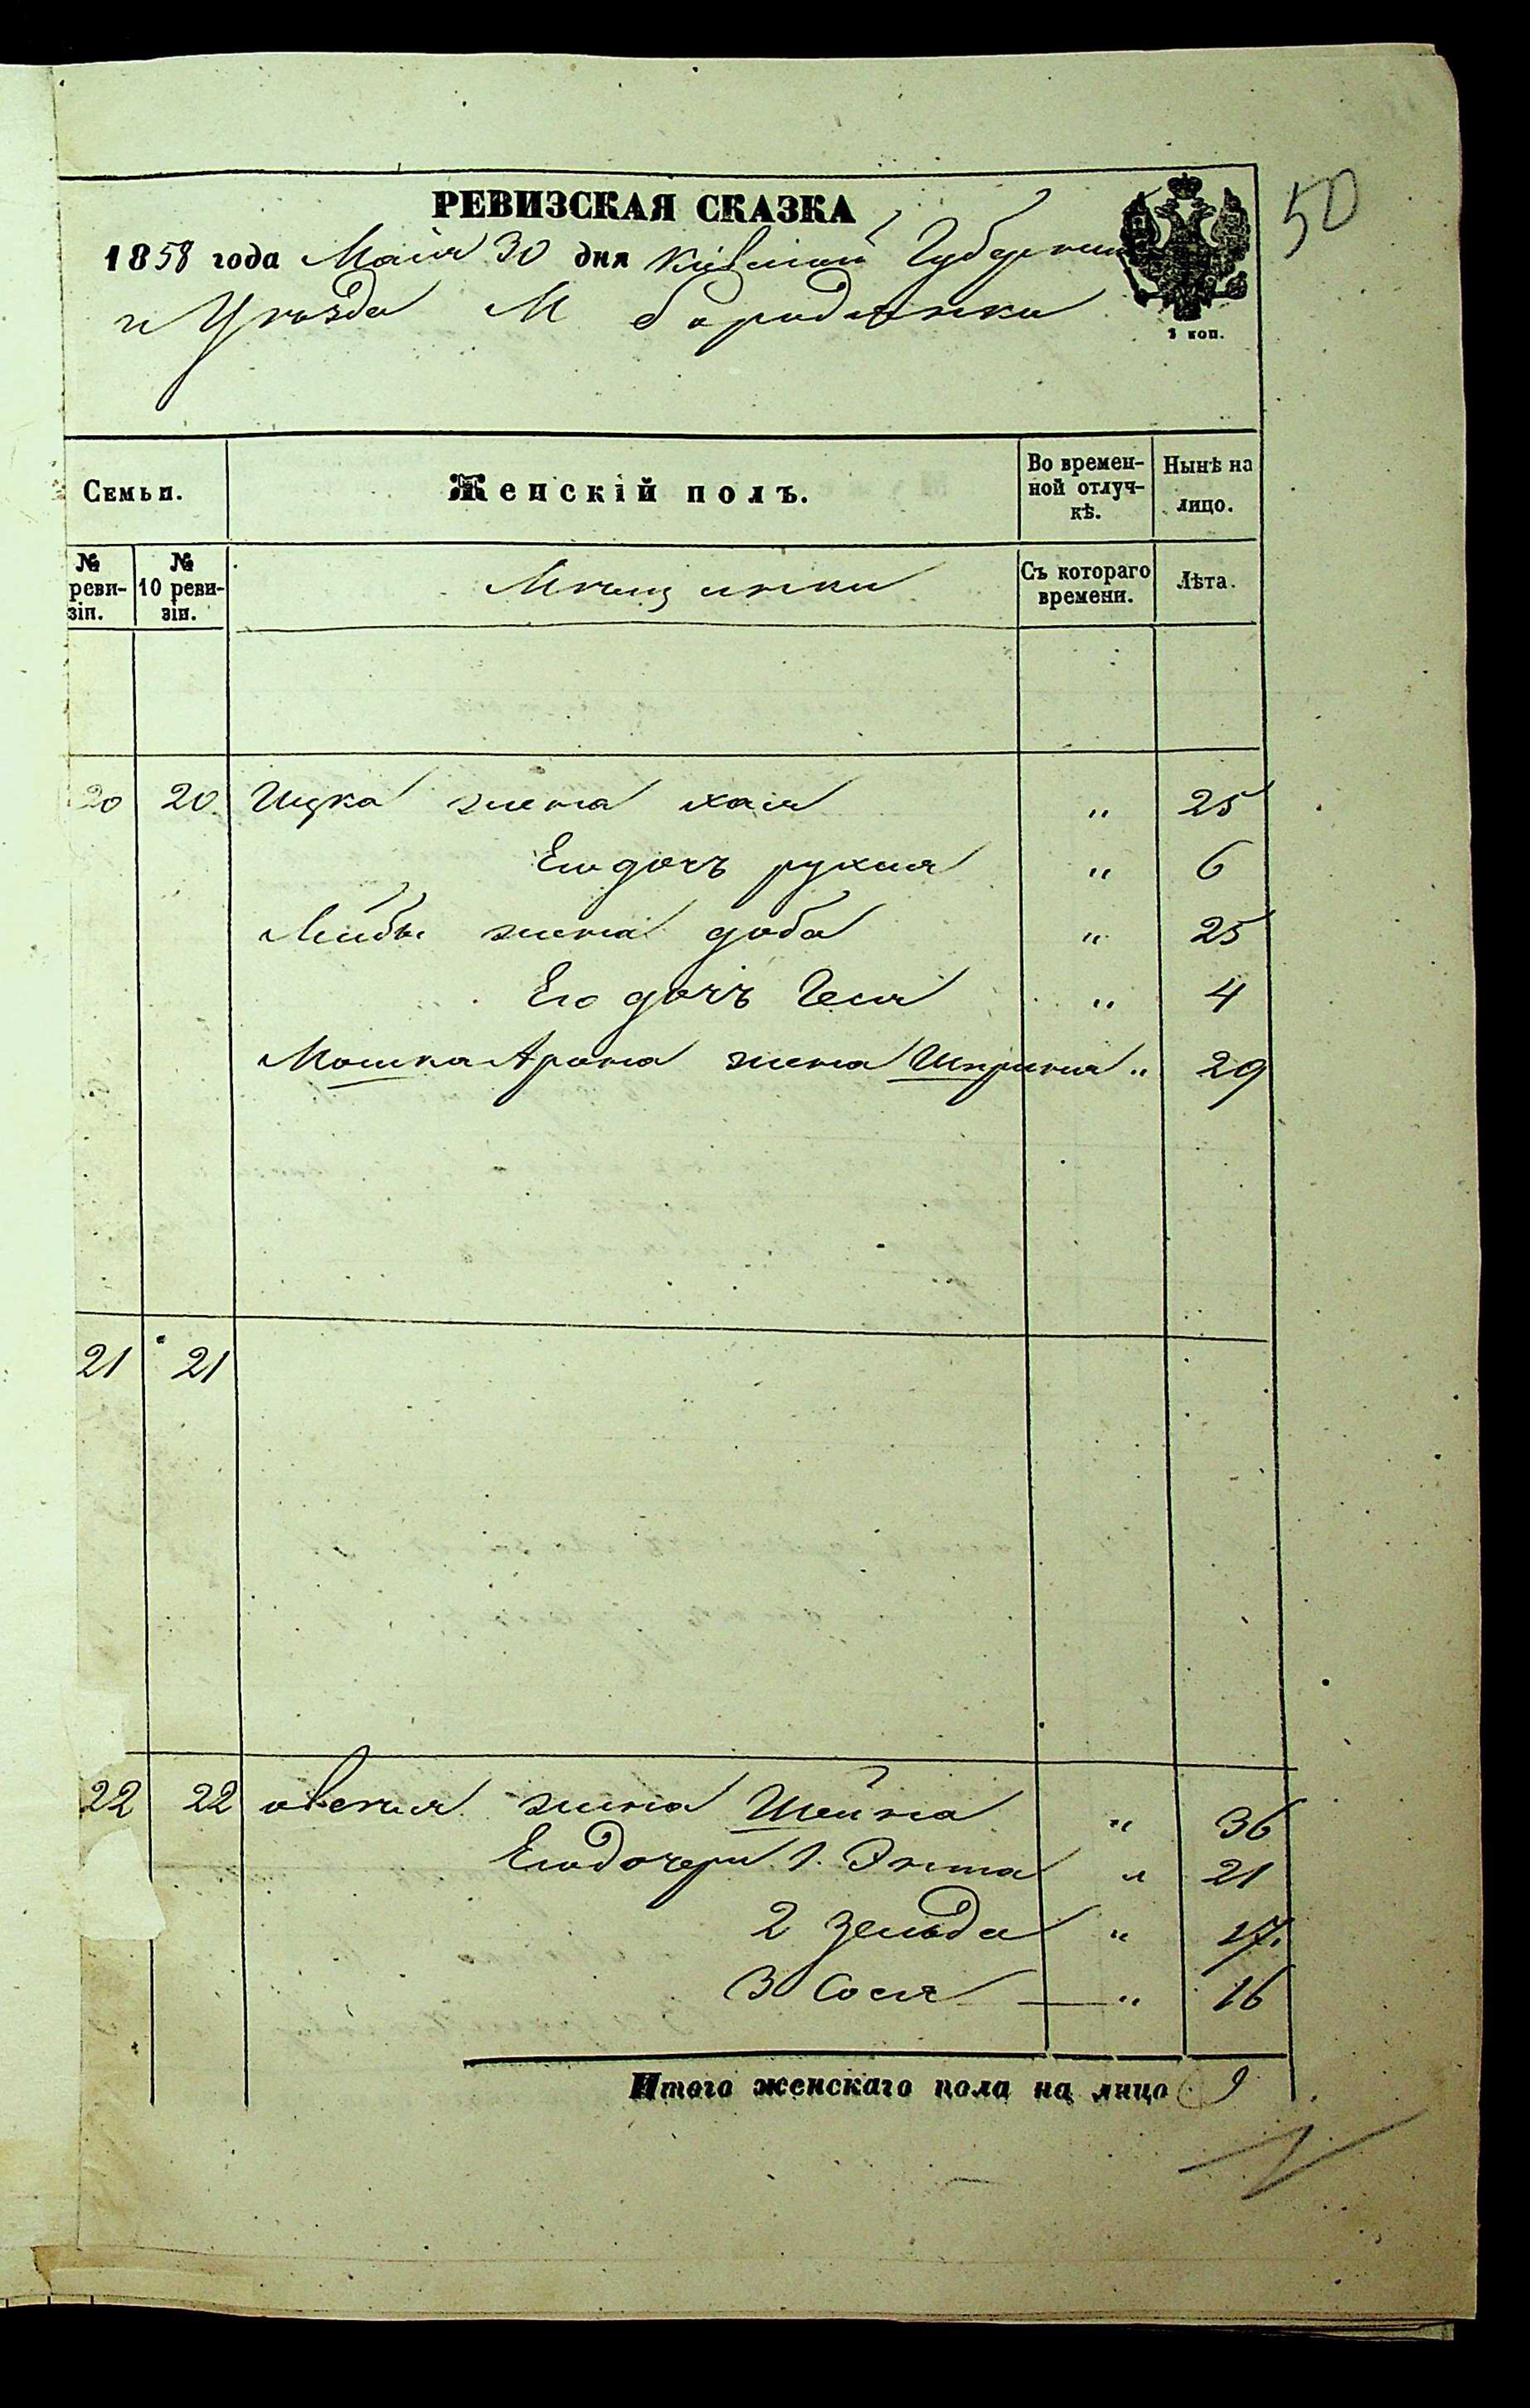 50
РЕВИЗСКАЯ СКАЗКА
1858 года Маія 30 дня Кіевской Губерніи
и Уѣзда М Бородянки
1 коп.
Семьи.
Женскій полъ.
Во времен-
ной отлуч-
кѣ.
Нынѣ на
лицо.
№
реви-
зіи.
№
10 реви-
зіи.
Мѣщанки
Съ котораго
времени.
Лѣта.
20 20 Ицка жена Хая " 25
Его дочъ Рухля " 6
Лейбы жена Доба " 25
Его дочъ Геся " 4
Мошка Арона жена Шпринца " 29
21 21
22 22 жена Шейна " 36
Его дочери 1. Энта " 21
2 Зельда " 17.
3 Сося — " 16
Итого женскаго пола на лицо 9